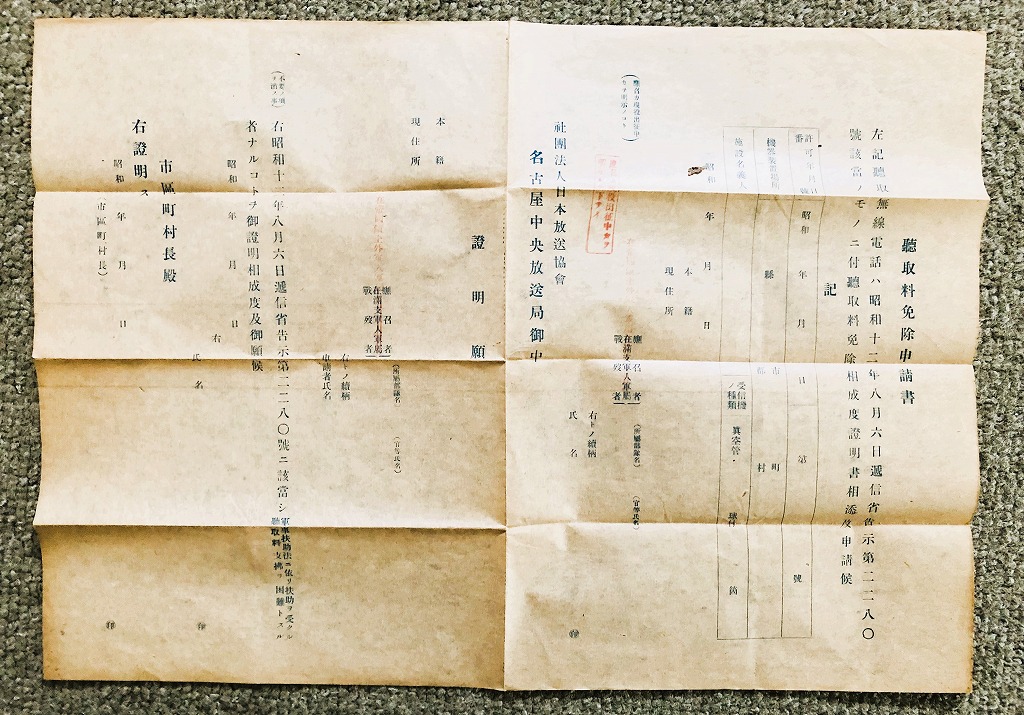 聽取料免除申請書
左記聽取無線電話ハ昭和十二年八月六日遞信省吿示第二二八〇
號該當ノモノニ付聽取料免除相成度證明書相添及申請候
記
許可年月日 昭和 年 月 日 第 號
番號
機器裝置場所 縣 市 郡 町 村
施設名義人
受信機ノ種類 眞空管・ 球付 箇
昭和 年 月 日
本籍
現住所
應召者
在滿支軍人軍屬
戰歿者
(所屬部隊名) (官等氏名)
右トノ續柄
氏名 ㊞
社團法人日本放送協會
名古屋中央放送局御中
證明願
本籍
現住所
應召者
在滿支軍人軍屬
戰歿者
(所屬部隊名) (官等氏名)
右トノ續柄
申請者氏名
右昭和十二年八月六日遞信省吿示第二二八〇號ニ該當シ
軍事扶助法ニ依リ扶助ヲ受クル
聽取料支拂ヲ困難トスル
者ナルコトヲ御證明相成度及御願候
昭和 年 月 日
右
氏名 ㊞
市區町村長殿
右證明ス
昭和 年 月 日
市區町村長 ㊞